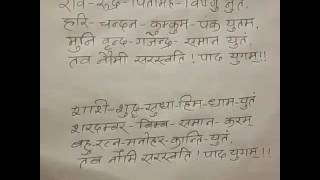 रवि-रुद्र-पितामह-विष्णु नुतं,
हरि-चन्दन-कुम्कुम-पंक युतम्,
मुनि वृन्द-गजेन्द्र-समान युतं,
तव नौमी सरस्वति! पाद युगम्!!
शशि-शुद्ध-सुधा-हिम-धाम-युतं
शरदम्बर-बिम्ब-समान-करम्
बहु-रत्न-मनोहर-कान्ति-युतं,
तव नौमि सरस्वति! पाद युगम्!!